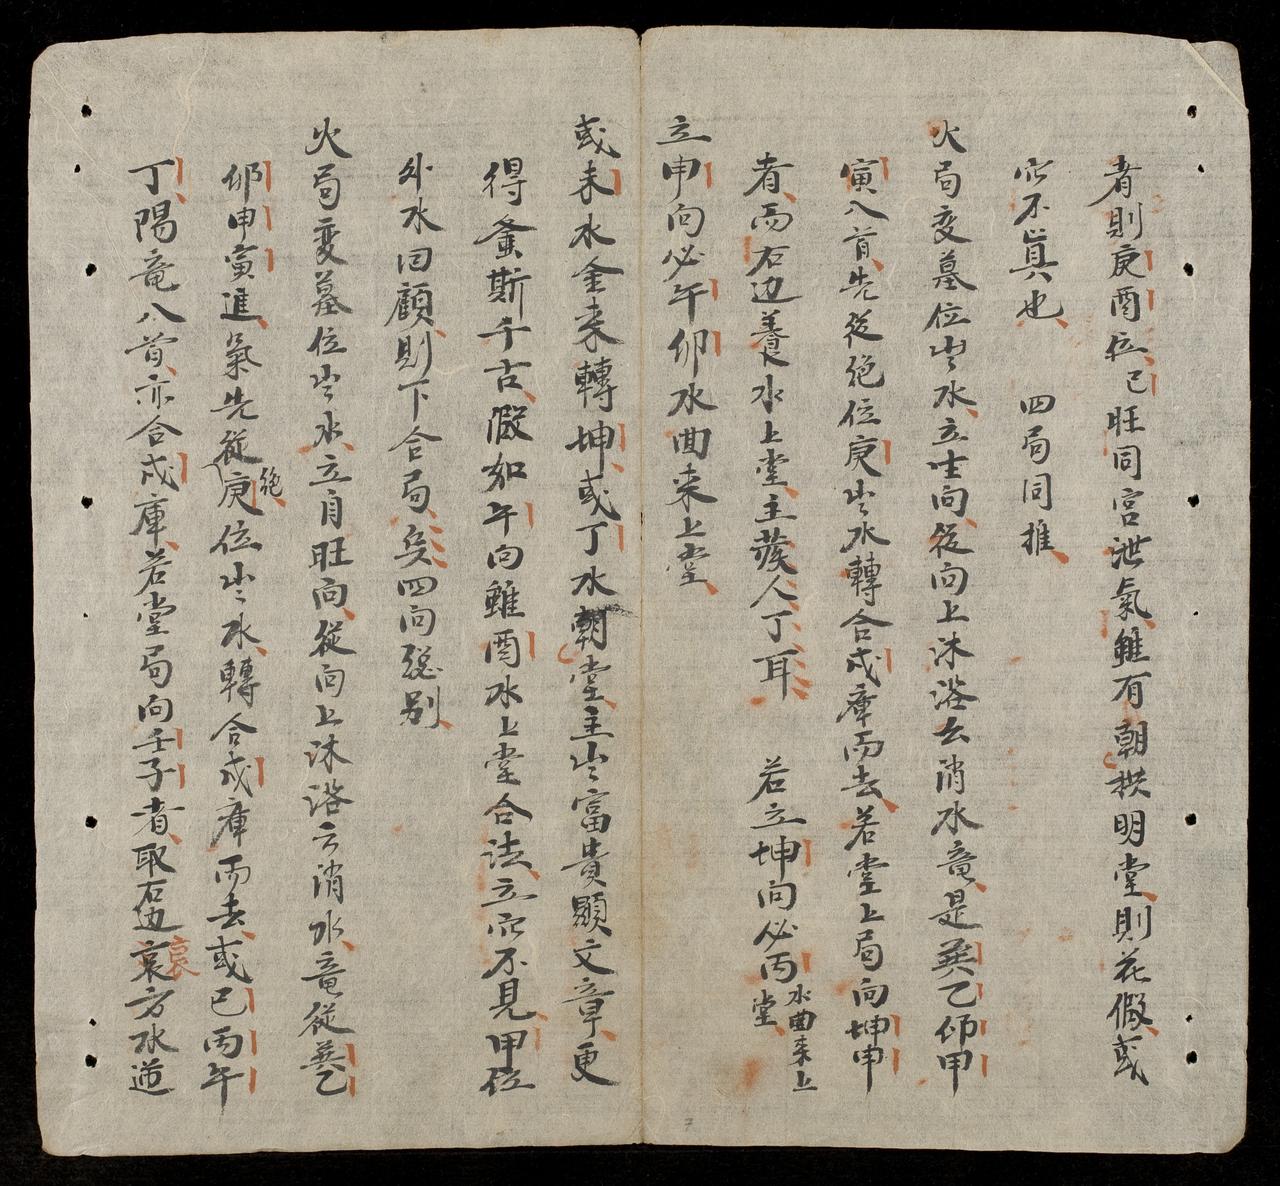 者則庚酉位已旺同宮泄氣雖有朝拱明堂則花假或
穴不眞也　四局同推
火局変墓位出水立生向從向上沐浴去消水竜是巽乙卯甲
寅八首先從絶位庚出水轉合戍庫而去若堂上局向坤申
者而右边養水上堂主發人丁耳　若立坤向必丙水曲来上堂
立申向必午卯水曲来上堂
或未水金来轉坤或丁水朝堂主出富貴顯文章更
得螽斯千古假如午向雖酉水上堂合法立穴不見甲位
外水回顧則下合局矣四向緫别
火局变墓位出水立自旺向從向上沐浴云消水竜從巽乙
卯申寅進氣先從絶庚位出水轉合戍庫而去或巳丙午
丁陽竜八首亦合戍庫若堂局向壬子者取右边衰方水逆
衰